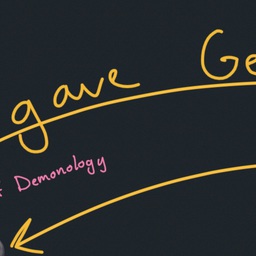 gave Ge
Demonology